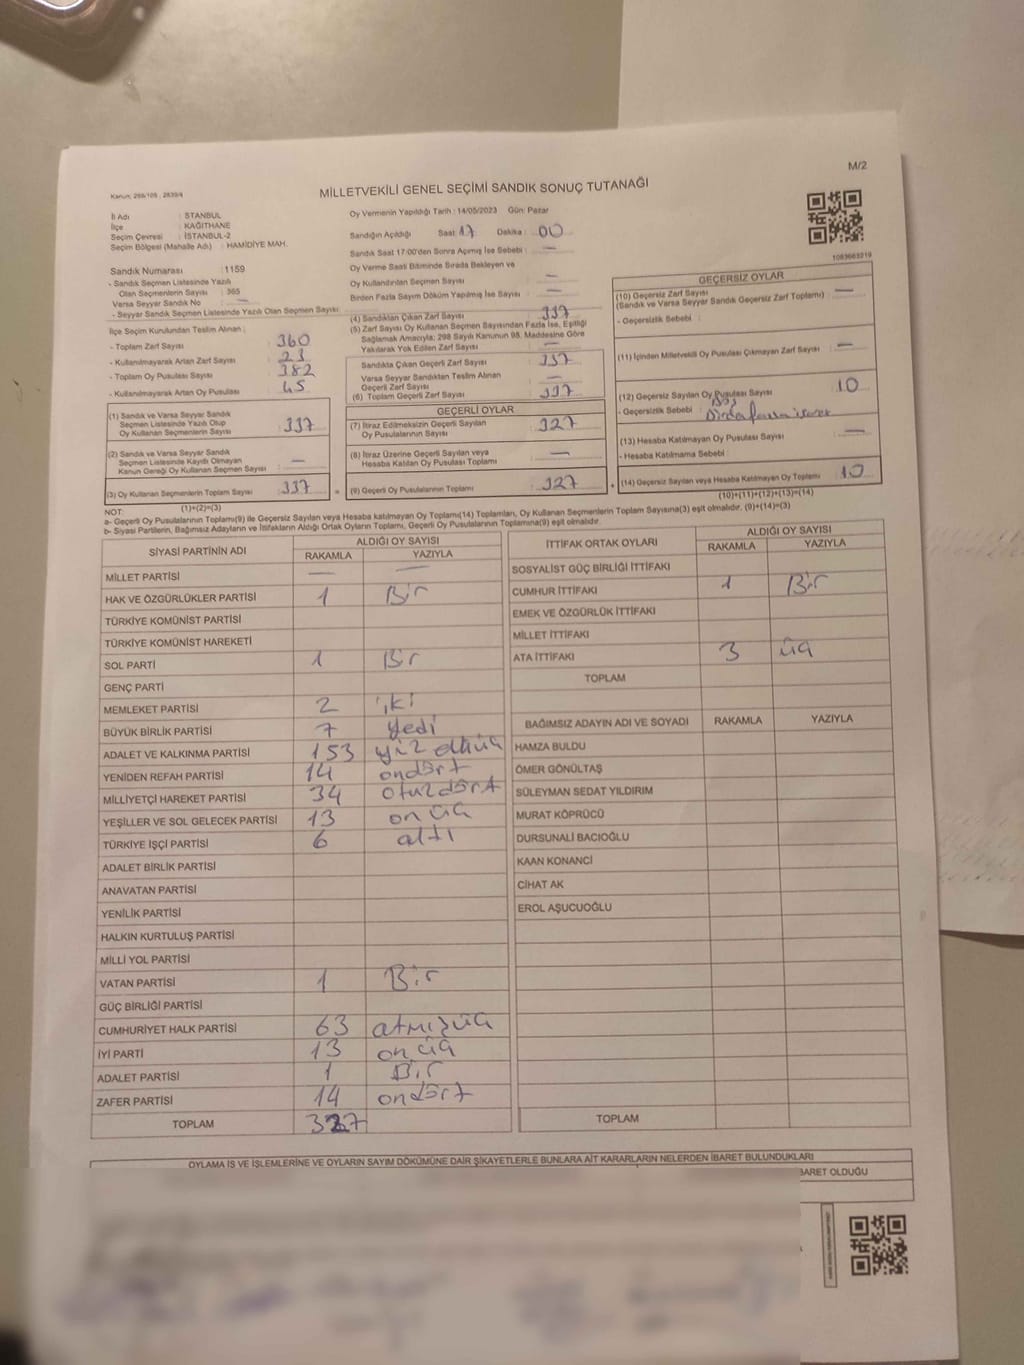 M/2
Kanun: 298/105 , 2839/4
MİLLETVEKİLİ GENEL SEÇİMİ SANDIK SONUÇ TUTANAĞI
İl Adı : İSTANBUL
İlçe : KAĞITHANE
Seçim Çevresi : İSTANBUL-2
Seçim Bölgesi (Mahalle Adı) : HAMİDİYE MAH.
Sandık Numarası : 1159
- Sandık Seçmen Listesinde Yazılı
Olan Seçmenlerin Sayısı : 365
Varsa Seyyar Sandık No —
- Seyyar Sandık Seçmen Listesinde Yazılı Olan Seçmen Sayısı
İlçe Seçim Kurulundan Teslim Alınan ;
- Toplam Zarf Sayısı 360
- Kullanılmayarak Artan Zarf Sayısı 23
- Toplam Oy Pusulası Sayısı 382
- Kullanılmayarak Artan Oy Pusulası 45
(1) Sandık ve Varsa Seyyar Sandık
Seçmen Listesinde Yazılı Olup
Oy Kullanan Seçmenlerin Sayısı : 337
(2) Sandık ve Varsa Seyyar Sandık
Seçmen Listesinde Kaydı Olmayan
Kanun Gereği Oy Kullanan Seçmen Sayısı : —
(3) Oy Kullanan Seçmenlerin Toplam Sayısı 337
(1)+(2)=(3)
Oy Vermenin Yapıldığı Tarih : 14/05/2023 Gün: Pazar
Sandığın Açıldığı Saat: 17 Dakika : 00
Sandık Saat 17:00'den Sonra Açılmış İse Sebebi : —
Oy Verme Saati Bitiminde Sırada Bekleyen ve
Oy Kullandırılan Seçmen Sayısı —
Birden Fazla Sayım Döküm Yapılmış İse Sayısı —
(4) Sandıktan Çıkan Zarf Sayısı 337
(5) Zarf Sayısı Oy Kullanan Seçmen Sayısından Fazla İse, Eşitliği
Sağlamak Amacıyla; 298 Sayılı Kanunun 98. Maddesine Göre
Yakılarak Yok Edilen Zarf Sayısı : —
Sandıkta Çıkan Geçerli Zarf Sayısı 337
Varsa Seyyar Sandıktan Teslim Alınan
Geçerli Zarf Sayısı —
(6) Toplam Geçerli Zarf Sayısı 337
GEÇERLİ OYLAR
(7) İtiraz Edilmeksizin Geçerli Sayılan
Oy Pusulalarının Sayısı 327
(8) İtiraz Üzerine Geçerli Sayılan veya
Hesaba Katılan Oy Pusulası Toplamı —
(9) Geçerli Oy Pusulalarının Toplamı 327
1083663219
GEÇERSİZ OYLAR
(10) Geçersiz Zarf Sayısı —
(Sandık ve Varsa Seyyar Sandık Geçersiz Zarf Toplamı) :
- Geçersizlik Sebebi :
(11) İçinden Milletvekili Oy Pusulası Çıkmayan Zarf Sayısı —
(12) Geçersiz Sayılan Oy Pusulası Sayısı 10
- Geçersizlik Sebebi : Boş
(13) Hesaba Katılmayan Oy Pusulası Sayısı —
- Hesaba Katılmama Sebebi :
(14) Geçersiz Sayılan veya Hesaba Katılmayan Oy Toplamı 10
(10)+(11)+(12)+(13)=(14)
NOT:
a- Geçerli Oy Pusulalarının Toplamı(9) ile Geçersiz Sayılan veya Hesaba katılmayan Oy Toplamı(14) Toplamları, Oy Kullanan Seçmenlerin Toplam Sayısına(3) eşit olmalıdır. (9)+(14)=(3)
b- Siyasi Partilerin, Bağımsız Adayların ve İttifakların Aldığı Ortak Oyların Toplamı, Geçerli Oy Pusulalarının Toplamına(9) eşit olmalıdır.
SİYASİ PARTİNİN ADI ALDIĞI OY SAYISI
RAKAMLA YAZIYLA
MİLLET PARTİSİ — —
HAK VE ÖZGÜRLÜKLER PARTİSİ 1 Bir
TÜRKİYE KOMÜNİST PARTİSİ
TÜRKİYE KOMÜNİST HAREKETİ
SOL PARTİ 1 Bir
GENÇ PARTİ
MEMLEKET PARTİSİ 2 iki
BÜYÜK BİRLİK PARTİSİ 7 yedi
ADALET VE KALKINMA PARTİSİ 153 yüz elli üç
YENİDEN REFAH PARTİSİ 14 ondört
MİLLİYETÇİ HAREKET PARTİSİ 34 otuzdört
YEŞİLLER VE SOL GELECEK PARTİSİ 13 onüç
TÜRKİYE İŞÇİ PARTİSİ 6 altı
ADALET BİRLİK PARTİSİ
ANAVATAN PARTİSİ
YENİLİK PARTİSİ
HALKIN KURTULUŞ PARTİSİ
MİLLİ YOL PARTİSİ
VATAN PARTİSİ 1 Bir
GÜÇ BİRLİĞİ PARTİSİ
CUMHURİYET HALK PARTİSİ 63 atmışüç
İYİ PARTİ 13 onüç
ADALET PARTİSİ 1 Bir
ZAFER PARTİSİ 14 ondört
TOPLAM 327
İTTİFAK ORTAK OYLARI ALDIĞI OY SAYISI
RAKAMLA YAZIYLA
SOSYALİST GÜÇ BİRLİĞİ İTTİFAKI
CUMHUR İTTİFAKI 1 Bir
EMEK VE ÖZGÜRLÜK İTTİFAKI
MİLLET İTTİFAKI
ATA İTTİFAKI 3 üç
TOPLAM
BAĞIMSIZ ADAYIN ADI VE SOYADI RAKAMLA YAZIYLA
HAMZA BULDU
ÖMER GÖNÜLTAŞ
SÜLEYMAN SEDAT YILDIRIM
MURAT KÖPRÜCÜ
DURSUNALİ BACIOĞLU
KAAN KONANCİ
CİHAT AK
EROL AŞUCUOĞLU
TOPLAM
OYLAMA İŞ VE İŞLEMLERİNE VE OYLARIN SAYIM DÖKÜMÜNE DAİR ŞİKAYETLERLE BUNLARA AİT KARARLARIN NELERDEN İBARET BULUNDUKLARI
BARET OLDUĞU